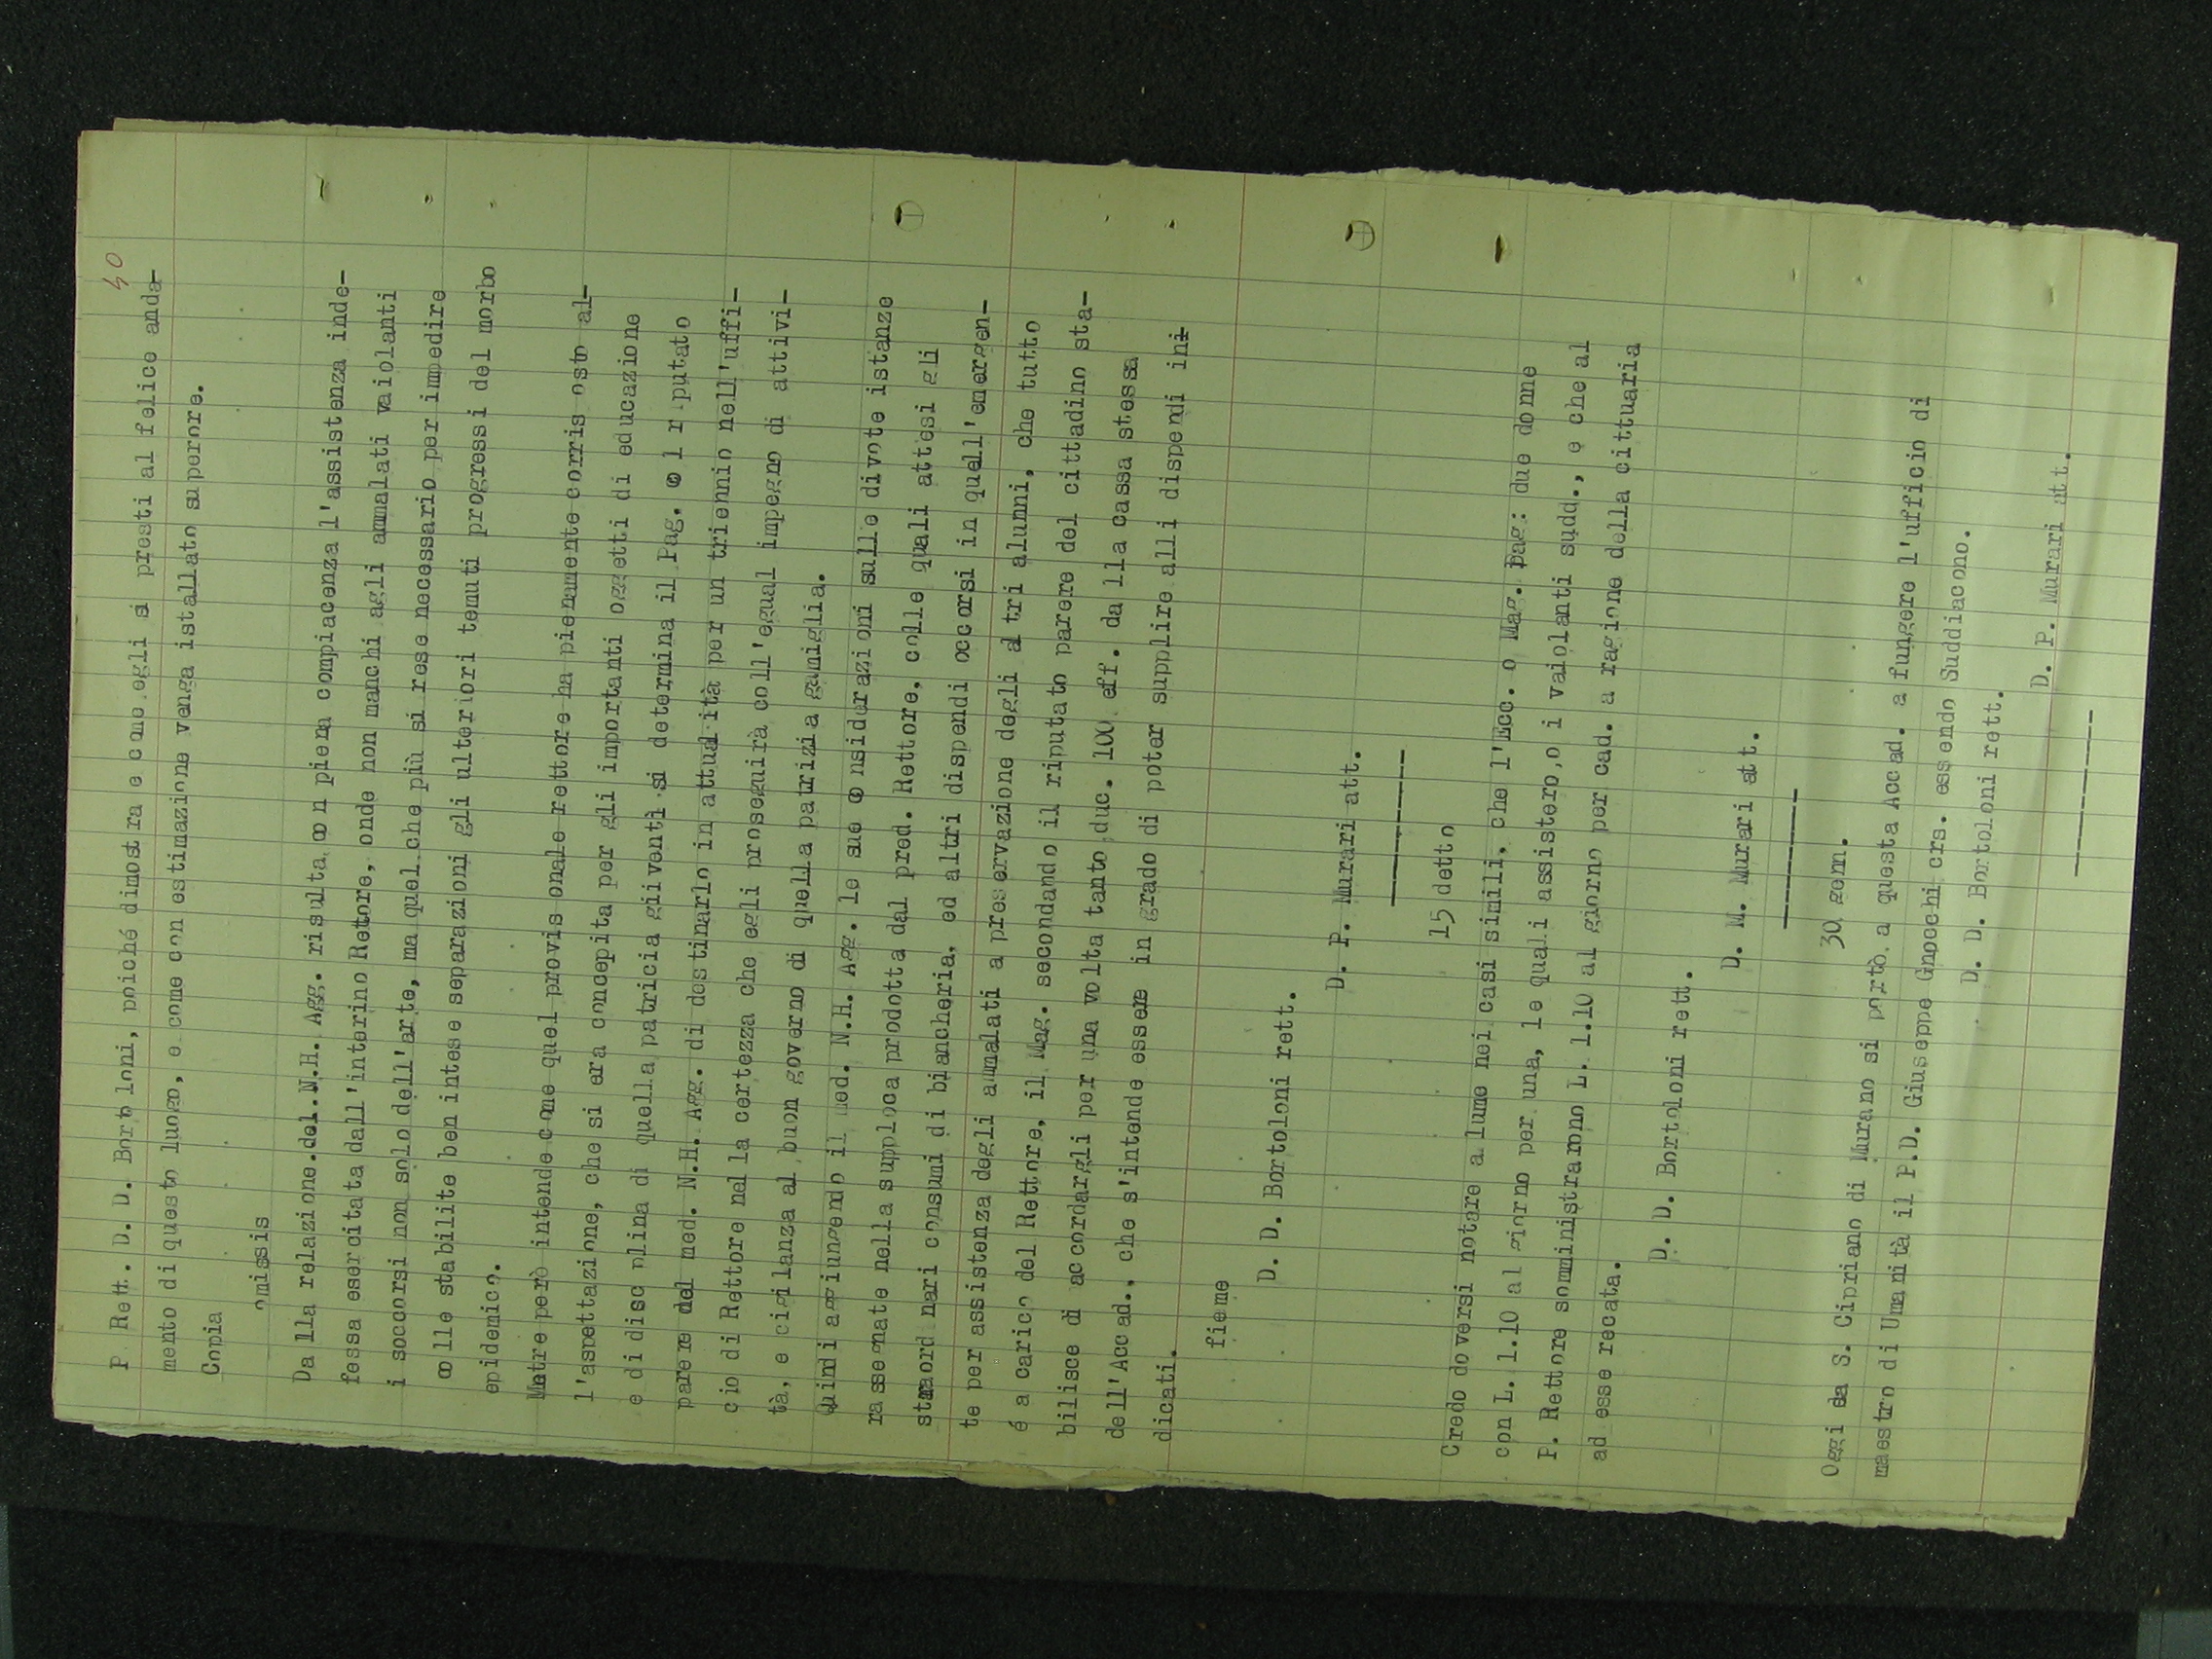 40
P. Rett. D. D. Bortoloni, poiché dimostra e come egli si presti al felice anda-
mento di questo luogo, e come con estimazione venga istallato superore.
Copia
omissis
Dalla relazione.del.N.H. Agg. risulta con piena compiacenza l'assistenza inde-
fessa esercitata dall'interino Rettore, onde non manchi agli ammalati vaiolanti
i soccorsi non solo dell'arte, ma quel che più si rese necessario per impedire
colle stabilite ben intese separazioni gli ulteriori temuti progressi del morbo
epidemico.
Metre però intende come quel provis onale rettore ha pienamente corris osto al-
l'aspettazione, che si era concepita per gli importanti oggetti di educazione
e di disc plina di quella patricia giiventì si determina il Pag. co l r putato
parere del med. N.H. Agg. di destinarlo in attualità per un triennio nell'uffi-
cio di Rettore nella certezza che egli proseguirà coll'egual impegno di attivi-
tà, e cigilanza al buon governo di quella patrizia gamiglia.
Quindi aggiungendo il med. N.H. Agg. le sue considerazioni sulle divote istanze
rassegnate nella supploca prodotta dal pred. Rettore, colle quali attesi gli
straord nari consumi di biancheria, ed altri dispendi occorsi in quell'emergen-
te per assistenza degli ammalati a preservazione degli altri alunni, che tutto
é a carico del Rettore, il Mag. secondando il riputato parere del cittadino sta-
bilisce di accordargli per una volta tanto duc. 100 eff. dalla cassa stessa
dell'Accad., che s'intende essere in grado di poter supplire alli dispendi ini-
dicati.
fieme
D. D. Bortoloni rett.
D. P. Murari att.
15 detto
Credo doversi notare a lume nei casi simili, che l'Ecc. o Mag. pag: due donne
con L. 1.10 al giorno per una, le quali assistero,o i vaiolanti sudd., e che al
P. Rettore somministrarono L. 1.10 al giorno per cad. a ragione della cittuaria
ad esse recata.
D. D. Bortoloni rett.
D. M. Murari att.
30 genn.
Oggi da S. Cipriano di Murano si portò a questa Accad. a fungere l'ufficio di
maestro di Umanità il P.D. Giuseppe Gnocchi crs. essendo Suddiacono.
D. D. Bortoloni rett.
D. P. Murari att.